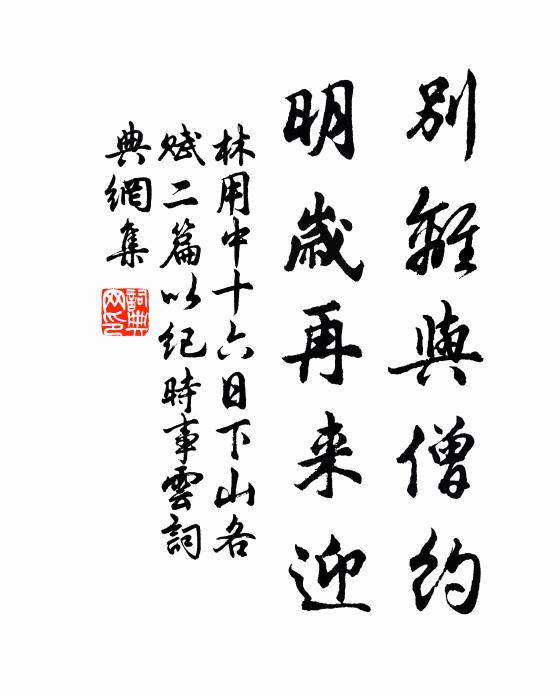 別離與僧約
明歲再来迎
林用中十六日下山各
賦二篇以紀時事雲詞
典網集
詞典網印